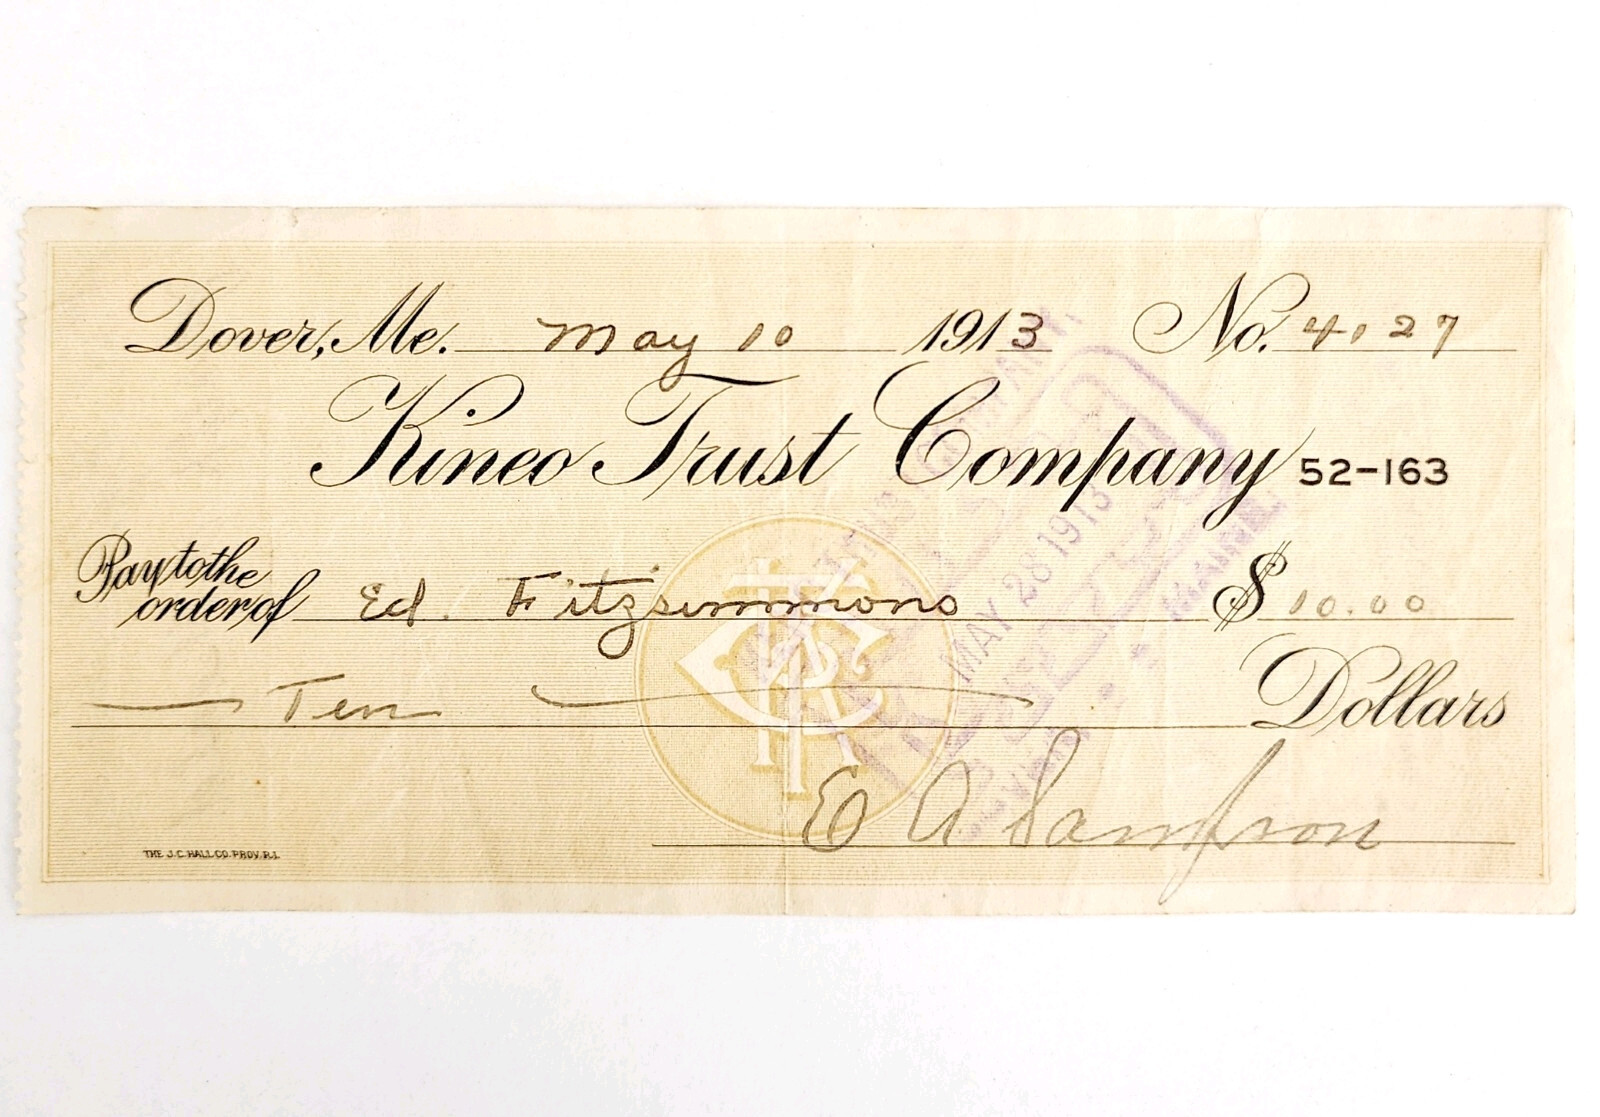 Dover, Me. May 10 1913 No. 4127
Kineo Trust Company 52-163
Pay to the
order of Ed. Fitzsimmons $10.00
Ten Dollars
E A Sampson
THE J.C. HALL CO. PROV. R.I.
KTC
MAY 28 1913
MAINE